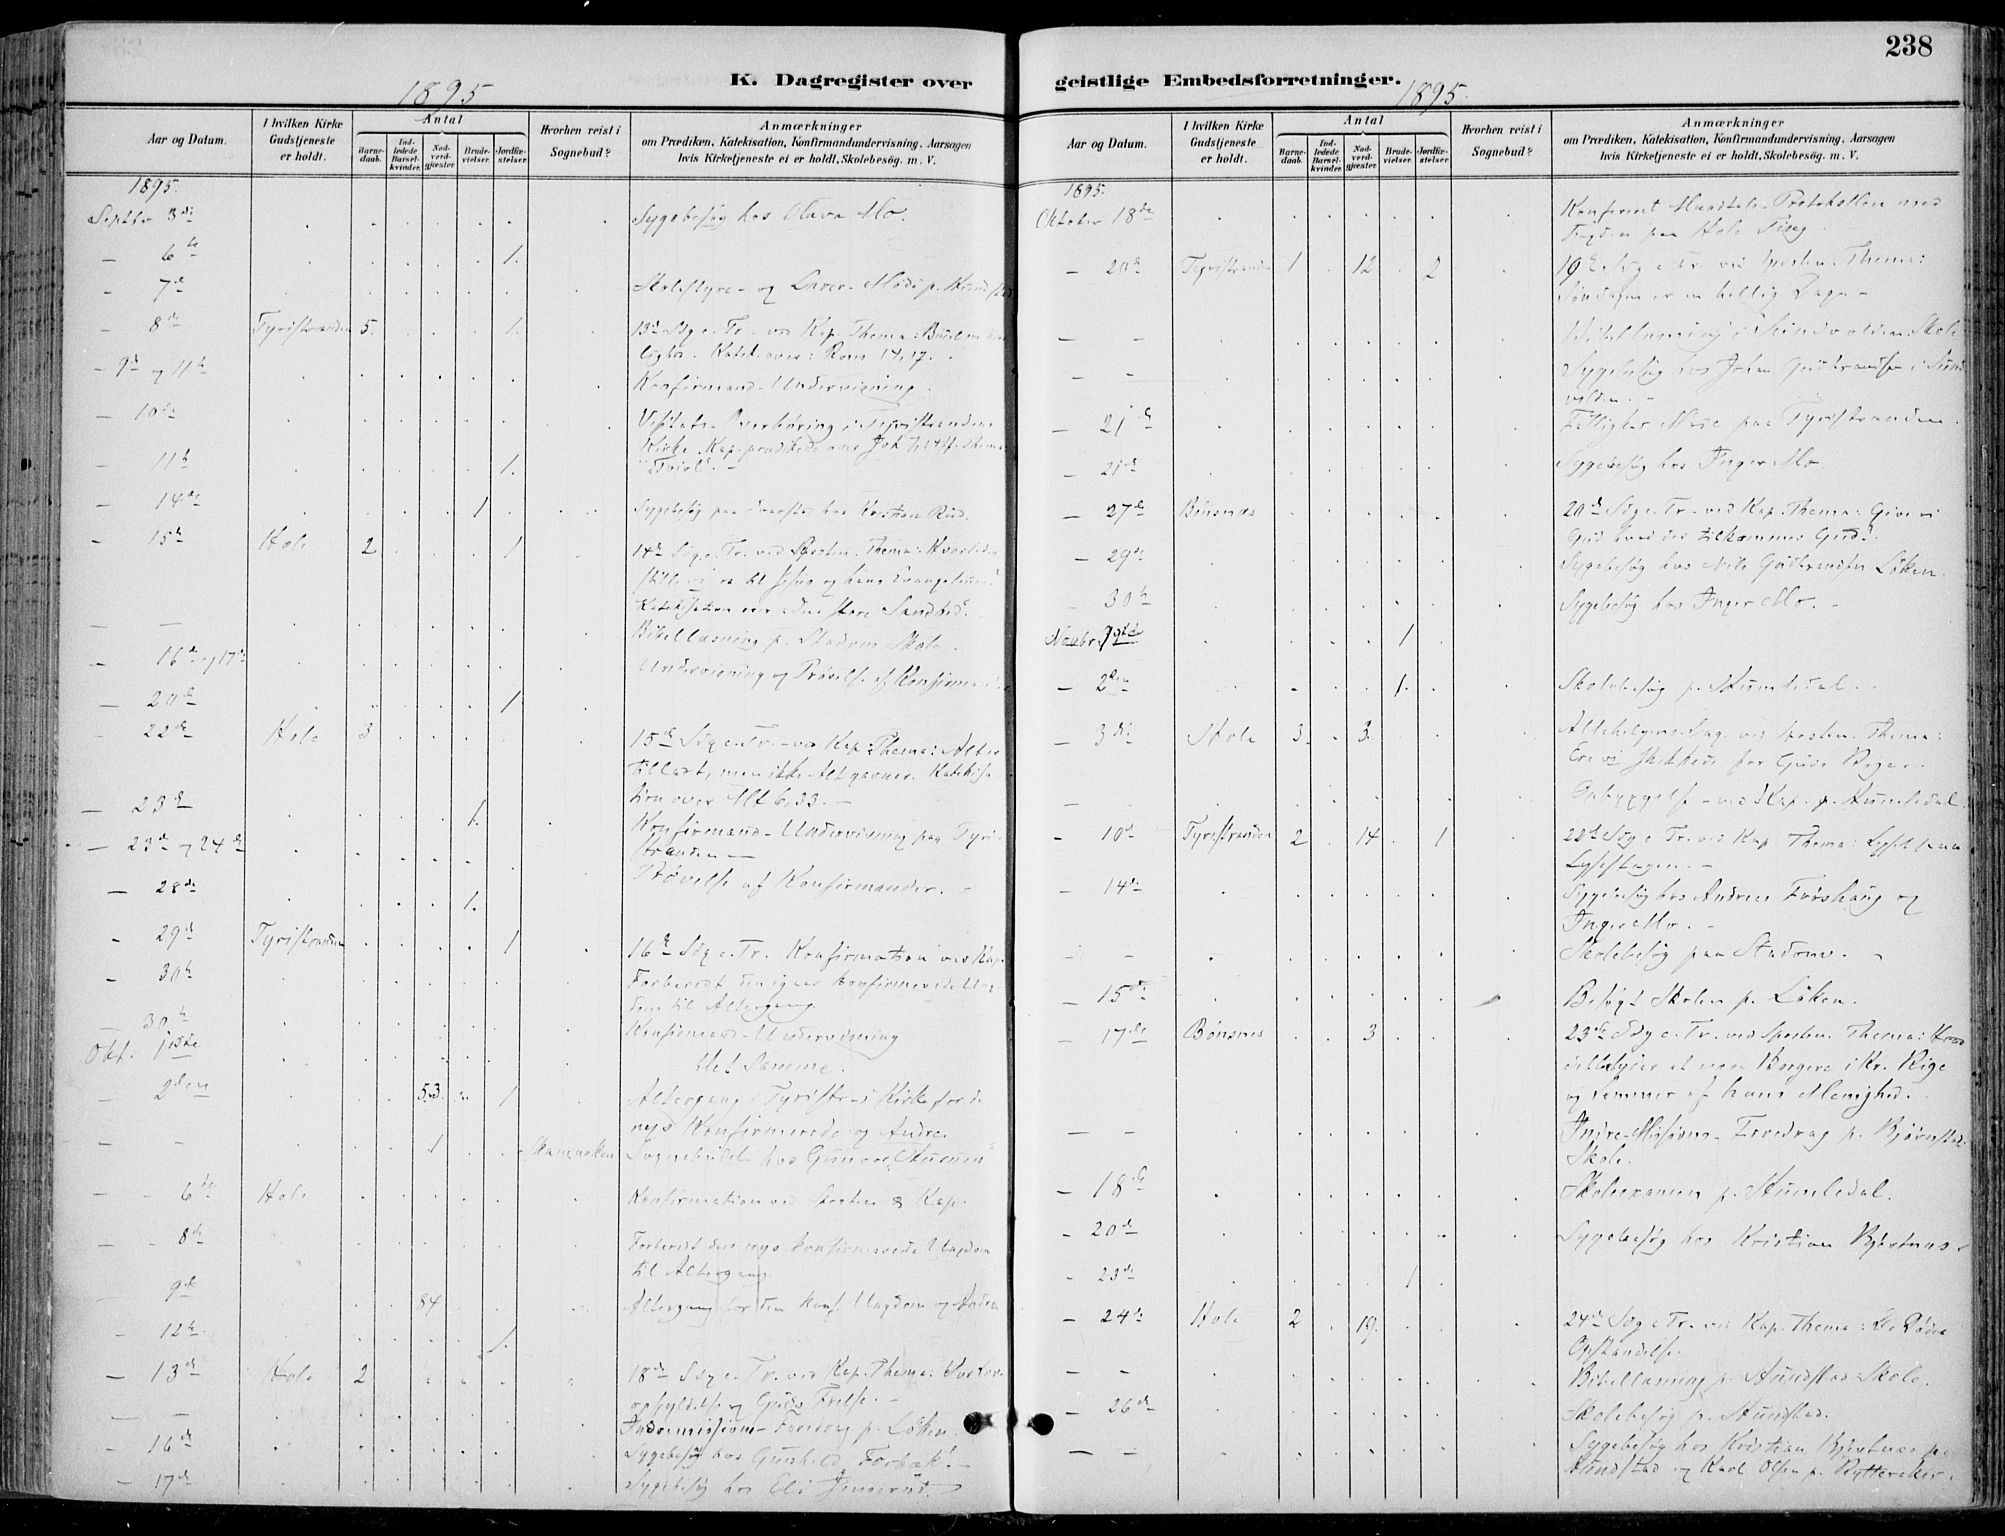 238
K. Dagregister over geistlige Embedsforretninger.
1895
Aar og Datum.
I hvilken Kirke Gudstjeneste er holdt.
Antal
Barnedaab.
Indledede Barselkvinder.
Nadverdgjester.
Brudevielser.
Jordfæstelser.
Hvorhen reist i Sognebud?
Anmærkninger
om Prædiken, Katekisation, Konfirmandundervisning, Aarsagen
hvis Kirketjeneste ei er holdt, Skolebesøg m. V.
1895.
Septbr 3di Sygebesøg hos Olava Mo.
— 6te 1.
— 7de Skolestyre- og Lærer-Møde p.
— 8de Tyristranden 5. 1. 13de Søg e. Tr. ved Kap. Thema:
Katek. over: Rom 14, 17.
— 9de og 11te Konfirmand-Undervisning.
— 10de Visitats- Overhøring i Tyristrandens
Kirke. Kap. prædikede over Joh
— 11te 1. "Tvivl". —
— 14de 1 Sygebesøg paa hos Kristian Rud.
— 15de Hole 2 1 14de Søg e. Tr. ved Thema: Hvorledes
stille vi os til Jesus og hans Evangelium?
Katekisation over "den store Sandhed".
— — Bibellæsning p. Stadum Skole.
— 16de og 17de Undervisning og Prøvelse af Konfirmander
— 20de 1
— 22de Hole 3 15de Søg e. Tr. ved Kap. Thema: Alt er
tilladt, men ikke Alt gavner. Katekisa-
tion over Mt 6, 33. —
— 23de 1.
— 23de og 24de Konfirmand-Undervisning paa Tyri-
stranden —
— 28de 1. Prøvelse af Konfirmander. —
— 29de Tyristranden 1 16de Søg e. Tr. Konfirmation ved Kap.
— 30te Forberedt den igaar konfirmerede Ung-
dom til Altergang
— 30te Konfirmand-Undervisning
Okt. 1ste det Samme.
— 2den 53 1 Altergang i Tyristr-s Kirke for de
nys Konfirmerede og Andre.
— — 1 Sognebudet hos
— 6te Hole Konfirmation ved & Kap.
— 8de Forberedt den nys konfirmerede Ungdom
til Altergang.
— 9de 84 Altergang for den konf. Ungdom og Andre
— 12te 1.
— 13de Hole 2 18de Søg e. Tr. ved Kap. Thema:
ophyldelse og Guds Frelse. —
— — Indremissions-Foredrag p. Løken.
— 16de Sygebesøg hos Gunhild Forbæk. —
— 17de Sygebesøg hos Eli
1895.
Aar og Datum.
I hvilken Kirke Gudstjeneste er holdt.
Antal
Barnedaab.
Indledede Barselkvinder.
Nadverdgjester.
Brudevielser.
Jordfæstelser.
Hvorhen reist i Sognebud?
Anmærkninger
om Prædiken, Katekisation, Konfirmandundervisning, Aarsagen
hvis Kirketjeneste ei er holdt, Skolebesøg m. V.
1895.
Oktober 18de Konfereret Mandtals-Protokollen med
Fogden paa Hole Ting.
— 20de Tyristranden 1 12 2 19de Søg e. Tr. ved Thema:
Søndagen er en hellig Dag. —
— — Bibellæsning i Sundvolden Skole
— — Sygebesøg hos Johan Gudbrandsen i Sund-
volden. —
— 21de Møde paa Tyristranden.
— 21de Sygebesøg hos Inger Mo
— 27de Bønsnes 20de Søg e. Tr. ved Kap. Thema: Give vi
Gud hvad der tilkommer Gud?
— 29de Sygebesøg hos Nils Gudbrandsen Løken.
— 30te Sygebesøg hos Inger Mo. —
Novbr. 1ste 1
— 2den 1. Skolebesøg p. Humledal.
— 3die Hole 3 3. Allehelgens Dag. ved Thema:
Ere vi skikkede for Guds Rige. —
— Opbyggelse ved Kap. p. Humledal.
— 10de Tyristranden 2 14 1 22de Søg e. Tr. ved Kap. Thema: Lyset paa
Lysestagen. —
— 14de Sygebesøg hos Andreas Frøshaug og
Inger Mo. —
— — Skolebesøg paa Stadum.
— 15de Besøgt Skolen p. Løken.
— 17de Bønsnes 3 23de Søg e. Tr. ved Thema: Hvad
det betyder at være Borgere i Kr. Rige
og Lemmer af hans Menighed.
— — Indre-Missions-Foredrag p. Bjørnstad
Skole.
— 18de Skoleexamen p. Humledal.
— 20de Sygebesøg hos Kristian Bjertnes.
— 23de 1
— 24de Hole 2 19. 24de Søg e. Tr. ved Kap. Thema: De Dødes
Opstandelse.
— — Bibellæsning p. Hundstad Skole.
— 26de Skolebesøg p. Hundstad.
— — Sygebesøg hos Kristian Bjertnes p.
Hundstad og Karl Olsen p. Rytteraker.